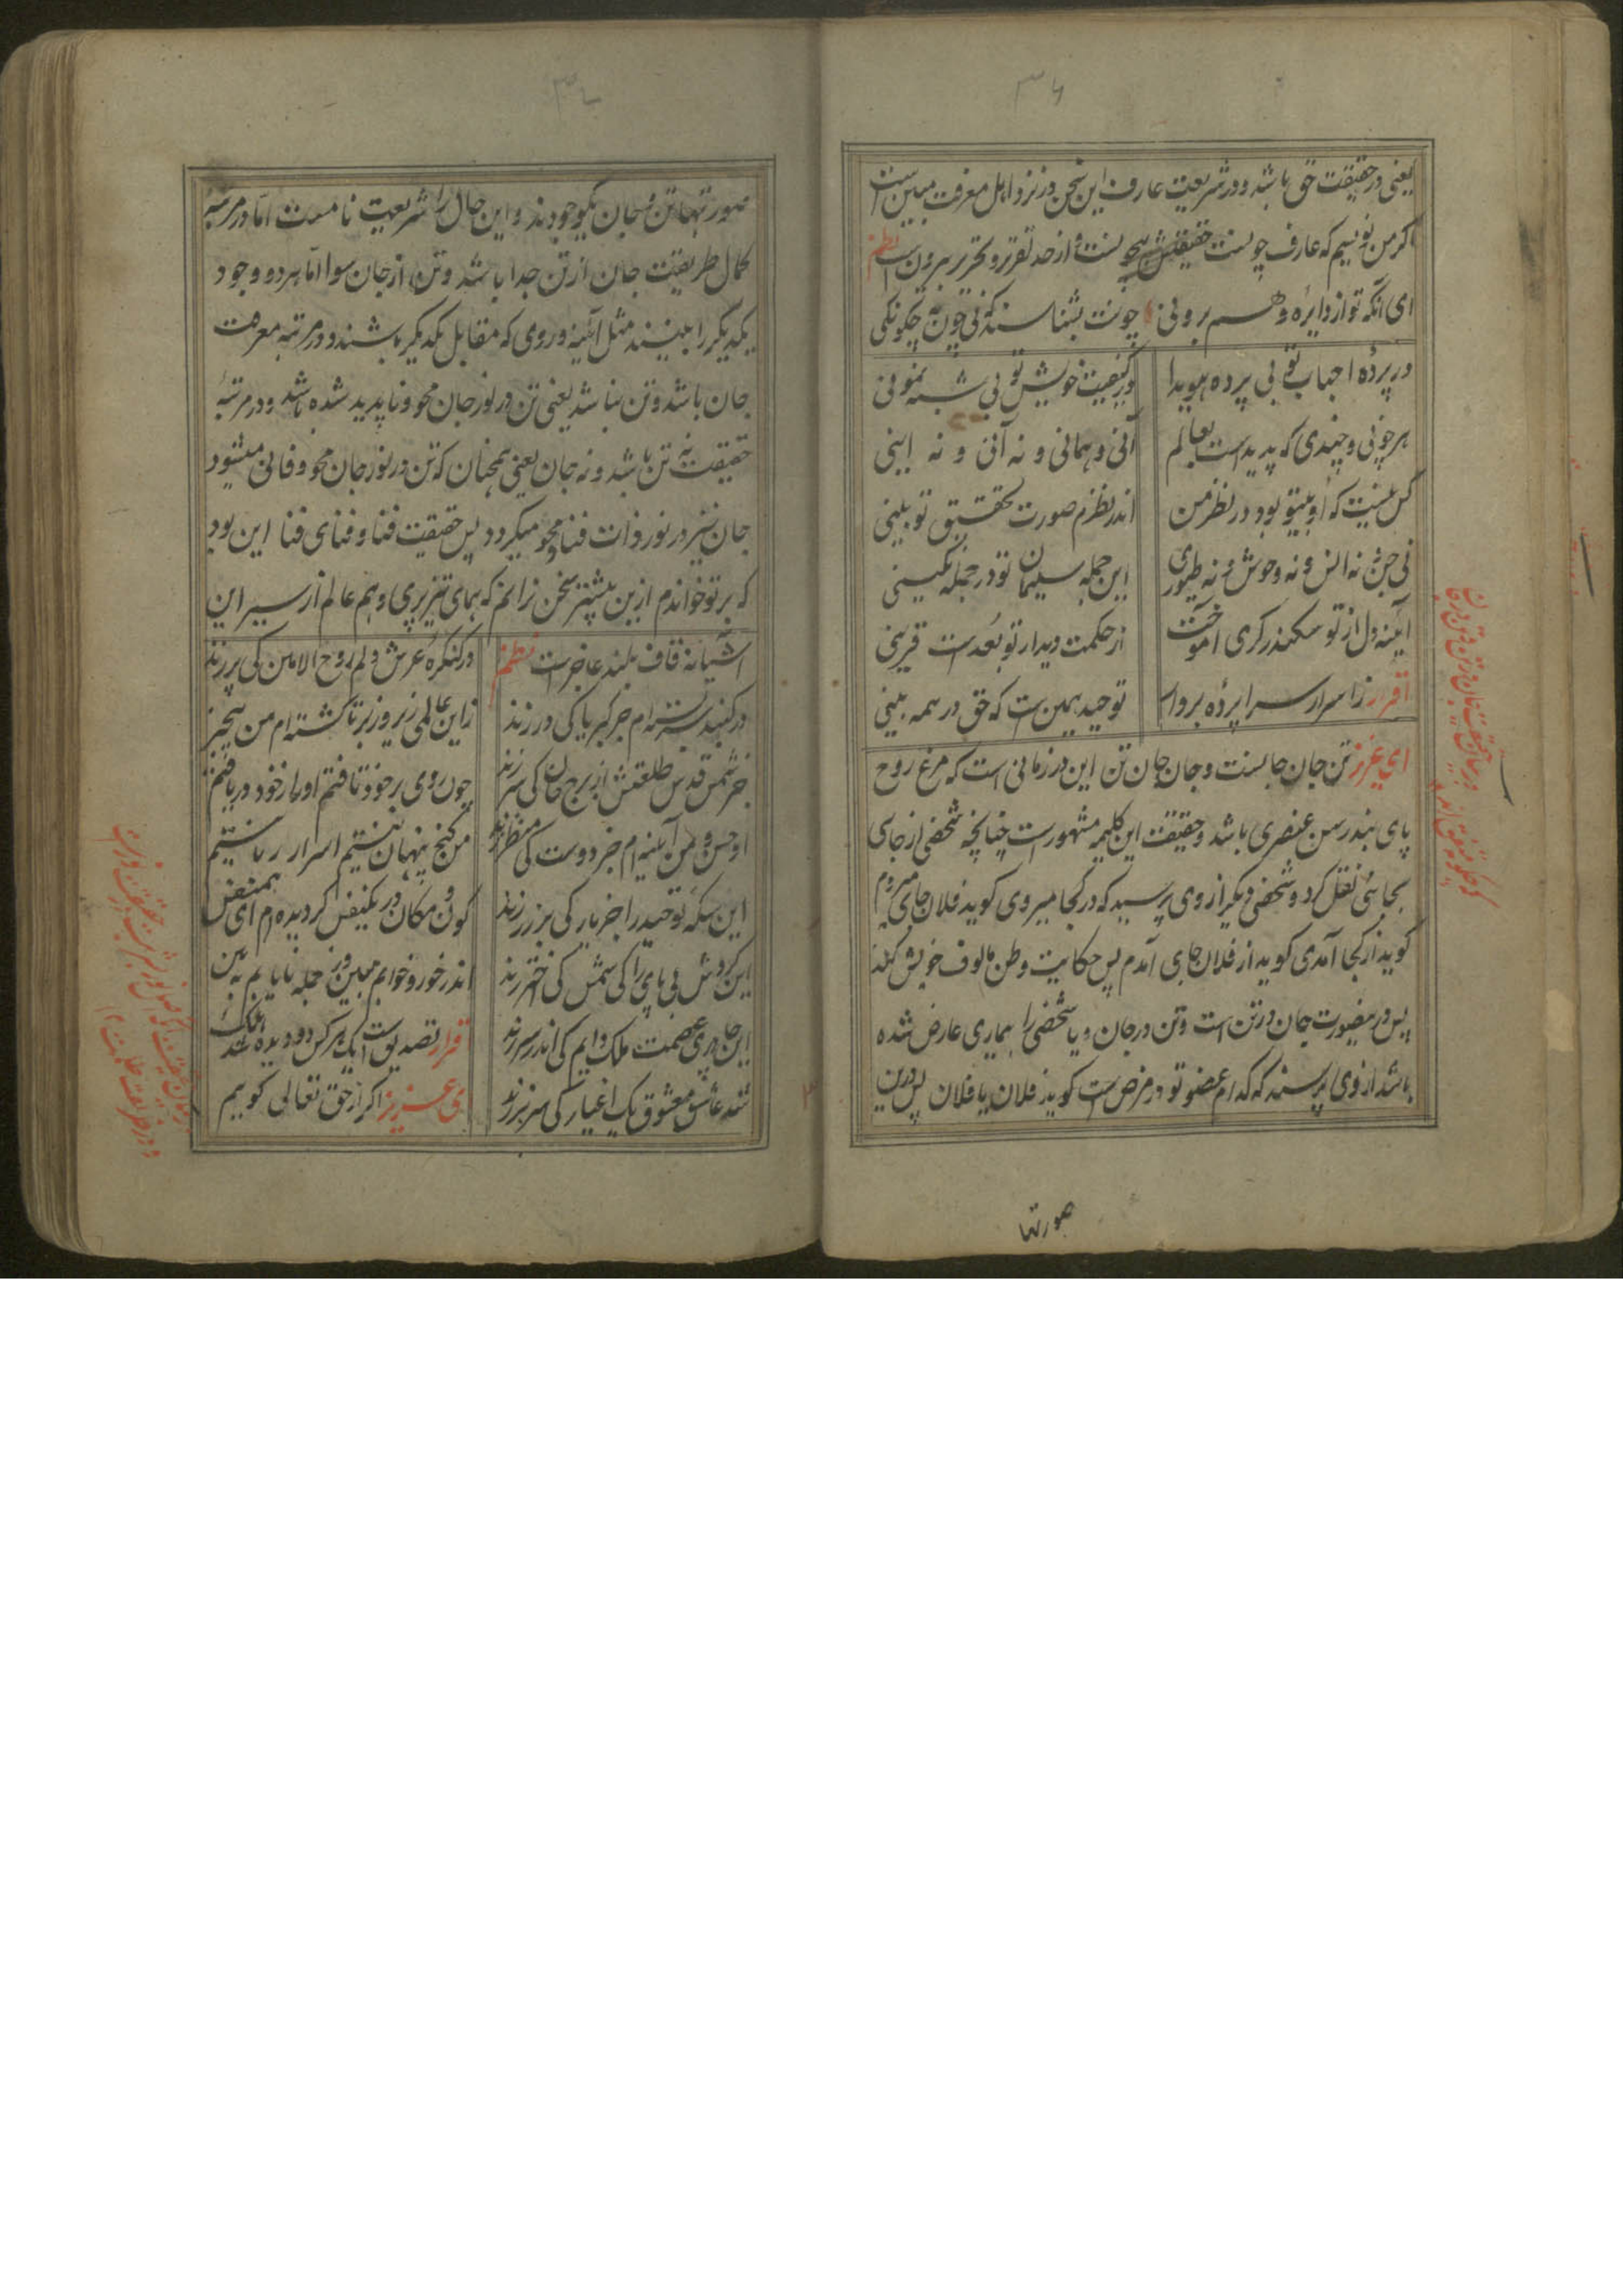 ۳۶
یعنی در حقیقت حق باشد و در شریعت عارف این سخن در نزد اهل معرفت مبین است
اکر من نویسم که عارف چونست حقیقتش بیچونست و از حد تقریر و تحریر بیرون است نظم
ای انکه تو از دایره وهم برونی چونت بشناسند که بی چون و چکونکی
در پردهٔ احباب تو بی پرده هویدا در کیفیت خویش تو بی شبه نمونی
هر چونی و چندی که پدید است بعالم آنی و همانی و نه آنی و نه اینی
کس نیست که او بیتو بود در نظر من اندر نظرم صورت تحقیق تو بینی
نی جن و نه انس و نه وحوش و نه طیوری این جمله سلیمان تو در جمله نکینی
آئینه دل از تو سکندر کری آموخت از حکمت دیدار تو بعد است قرینی
اقرار ز اسرار سراپرده بروار توحید همین است که حق در همه بینی
ای عزیز تن جان جانست و جان جان تن این در زمانی است که مرغ روح
پای بند رسن عنصری باشد و حقیقت این کلیمه مشهور است چنانچه شخصی از جای
بجائی نقل کرد و شخصی دیکر از وی پرسید که در کجا میروی کوید فلان جای میروم
کوید از کجا آمدی کوید از فلان جای آمدم پس حکایت وطن مالوف خویش کند
پس در بیصورت جان در تن است و تن در جان و یا شخصی را بیماری عارض شده
باشد از وی پرسند که کدام عضو تو در مرض است کوید فلان یا فلان پس درین
صورتها
۳۷
صورتها تن و جان یکوجودند و این حال را شریعت نامست اما در مرتبهٔ
کمال طریقت جان از تن جدا باشد و تن از جان سوا اما هر دو وجود
یکدیکر را بینند مثل آئینه و روی که مقابل یکدیکر باشند و در مرتبه معرفت
جان باشد و تن نباشد یعنی تن در نور جان محو و ناپدید شده باشد و در مرتبهٔ
حقیقت نه تن باشد و نه جان یعنی همچنان که تن در نور جان محو و فانی میشود
جان نیز در نور ذات فنا و محو میکردد پس حقیقت فنا و فنای فنا این بود
که بر تو خواندم ازین بیشتر سخن نرانم که همای تیزپری وهم عالم از سیر این
آشیانه قاف بلند عاجز است نظم در کنکرهٔ عرش دلم روح الامین کی پر زند
در کنبد بسته ام جز کبریا کی در زند زاین عالمی زیر و زبر تا کشته ام من بیخبر
جز شمس قدس طلعتش از برج جان کی سر زند چون روی بر خود تافتم او را ز خود دریافتم
او حسن و من آئینه ام جز دوست کی منظر زند من کنج پنهان نیستم اسرار ربانیستم
این سکه توحید را جز یار کی بر زر زند کون و مکان در یکنفس کردیده ام ای همنفس
این کردش بی پای را کی شمس کی اختر زند اندر خور و خوابم مبین در جمله نایابم به بین
این جا پری عصمت ملک دایم کی اندر سر زند اقرار تصدیق است ایک هر کس دو دیده شد هلک
شد عاشق معشوق یک اغیار کی سر بر زند ای عزیز اکر از حق تعالی کوییم